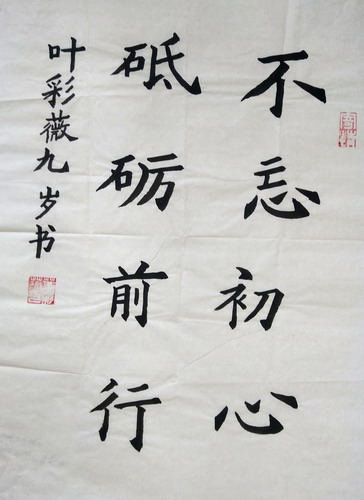 不忘初心
砥砺前行
叶彩薇九岁书